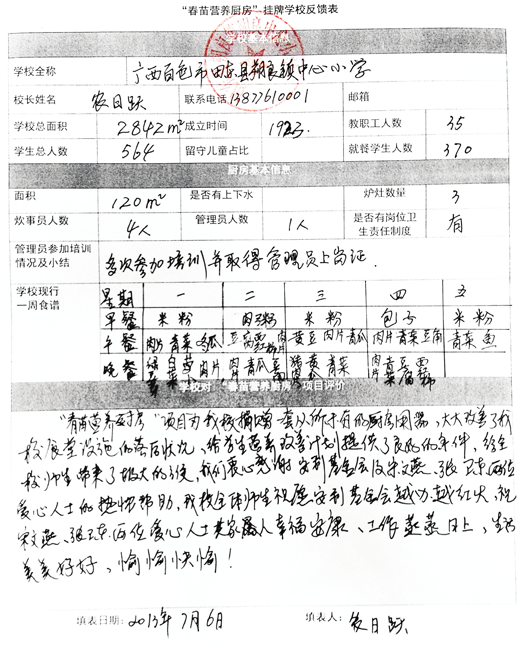 “春苗营养厨房”挂牌学校反馈表
学校基本信息
学校全称 广西百色市田东县朔良镇中心小学
校长姓名 农日跃 联系电话 13877610001 邮箱
学校总面积 2842m² 成立时间 1923. 教职工人数 35
学生总人数 564 留守儿童占比 就餐学生人数 370
厨房基本信息
面积 120m² 是否有上下水 炉灶数量 3
炊事员人数 4人 管理员人数 1人 是否有岗位卫
生责任制度 有
管理员参加培训
情况及小结 多次参加培训并取得管理员上岗证.
学校现行
一周食谱
星期 一 二 三 四 五
早餐 米粉 肉粥 米粉 包子 米粉
午餐 肉片青菜 肉片青瓜 肉片青菜豆角 青菜鱼
晚餐
学校对“春苗营养厨房”项目评价
“春苗营养厨房”项目为我校捐赠一套价值的厨房用器,大大改善了我
校食堂设施的落后状况,给学生营养改善计划提供了良好的条件,给全
校师生带来了极大的方便,我们衷心感谢安利基金会及宋文燕、张两位
爱心人士的热忱帮助,我校全体师生祝愿安利基金会越办越红火,祝
宋文燕、张两位爱心人士其家属人幸福安康、工作蒸蒸日上、生活
美美好好、愉愉快愉!
填表日期:2013年7月6日 填表人:农日跃